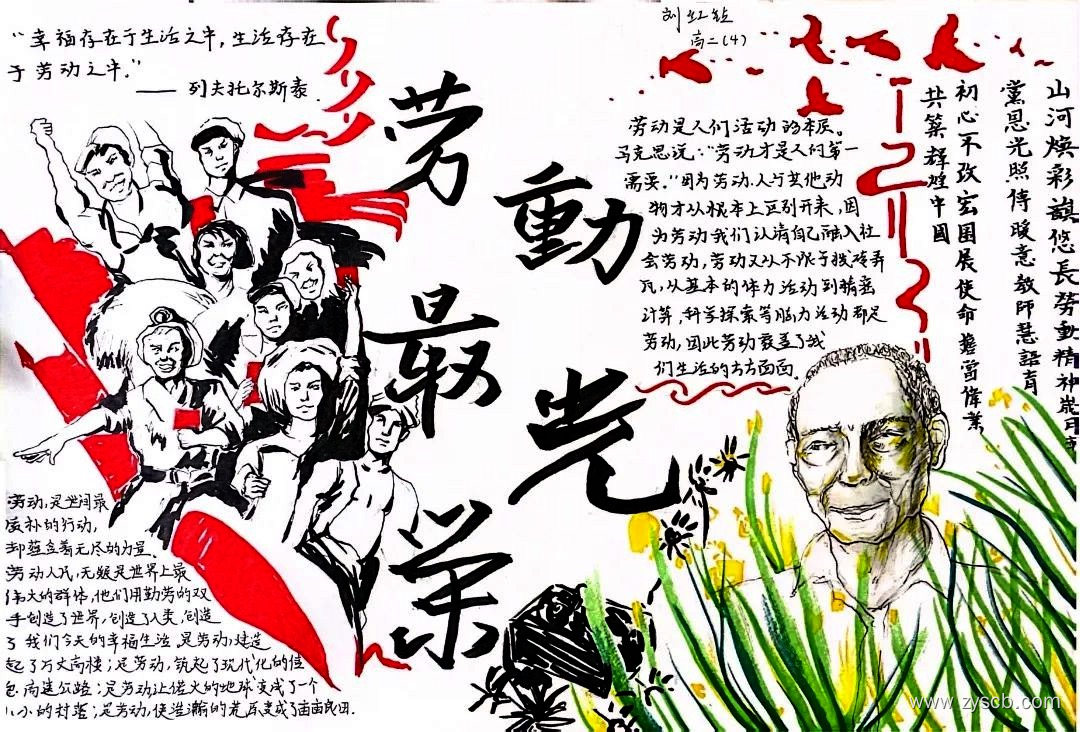 “幸福存在于生活之中,生活存在
于劳动之中。”
—— 列夫托尔斯泰
刘红
高二(4)
劳動最光荣
劳动是人们活动的本质。
马克思说:“劳动才是人们第一
需要。”因为劳动,人与其他动
物才从根本上区别开来,因
为劳动我们认清自己融入社
会劳动,劳动又从不限于搬砖弄
瓦,从基本的体力活动到精密
计算,科学探索等脑力活动都是
劳动,因此劳动覆盖了我
们生活的方方面面。
山河煥彩旗悠長勞動精神歲月
黨恩光照傳暖意教師慧語育
初心不改宏图展使命擔當偉業
共築輝煌中國
劳动,是世间最
质朴的行动,
却蕴含着无尽的力量。
劳动人民,无疑是世界上最
伟大的群体,他们用勤劳的双
手创造了世界,创造了人类,创造
了我们今天的幸福生活,是劳动,建造
起了万丈高楼;是劳动,筑起了现代化的信
息高速公路;是劳动让偌大的地球变成了一个
小小的村落;是劳动,使浩瀚的荒原变成了亩亩良田.
www.zyscb.com